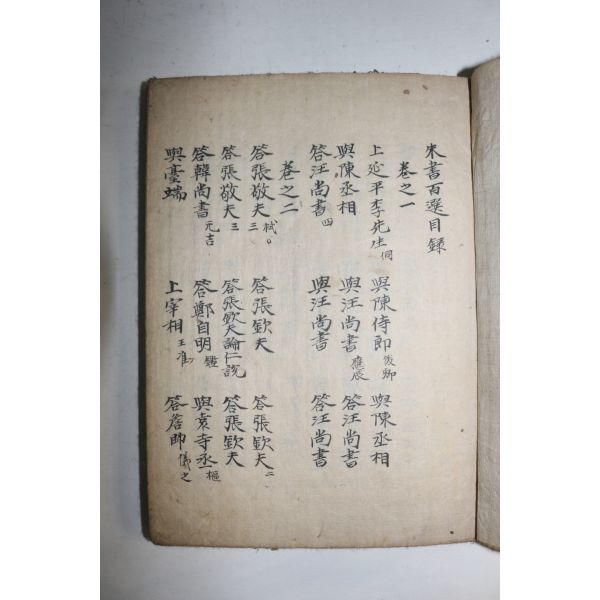 朱書百選目録
卷之一
上延平李先生侗 與陳侍郎俊卿 與陳丞相
與陳丞相 與汪尚書應辰 答汪尚書
答汪尚書四 與汪尚書 答汪尚書
卷之二
答張敬夫栻。三 答張欽夫 答張欽夫二
答張敬夫三 答張欽夫論仁說 答張欽夫
答韓尚書元吉 答鄭自明鑑 與袁寺丞樞
與臺端 上宰相王淮 答詹帥儀之